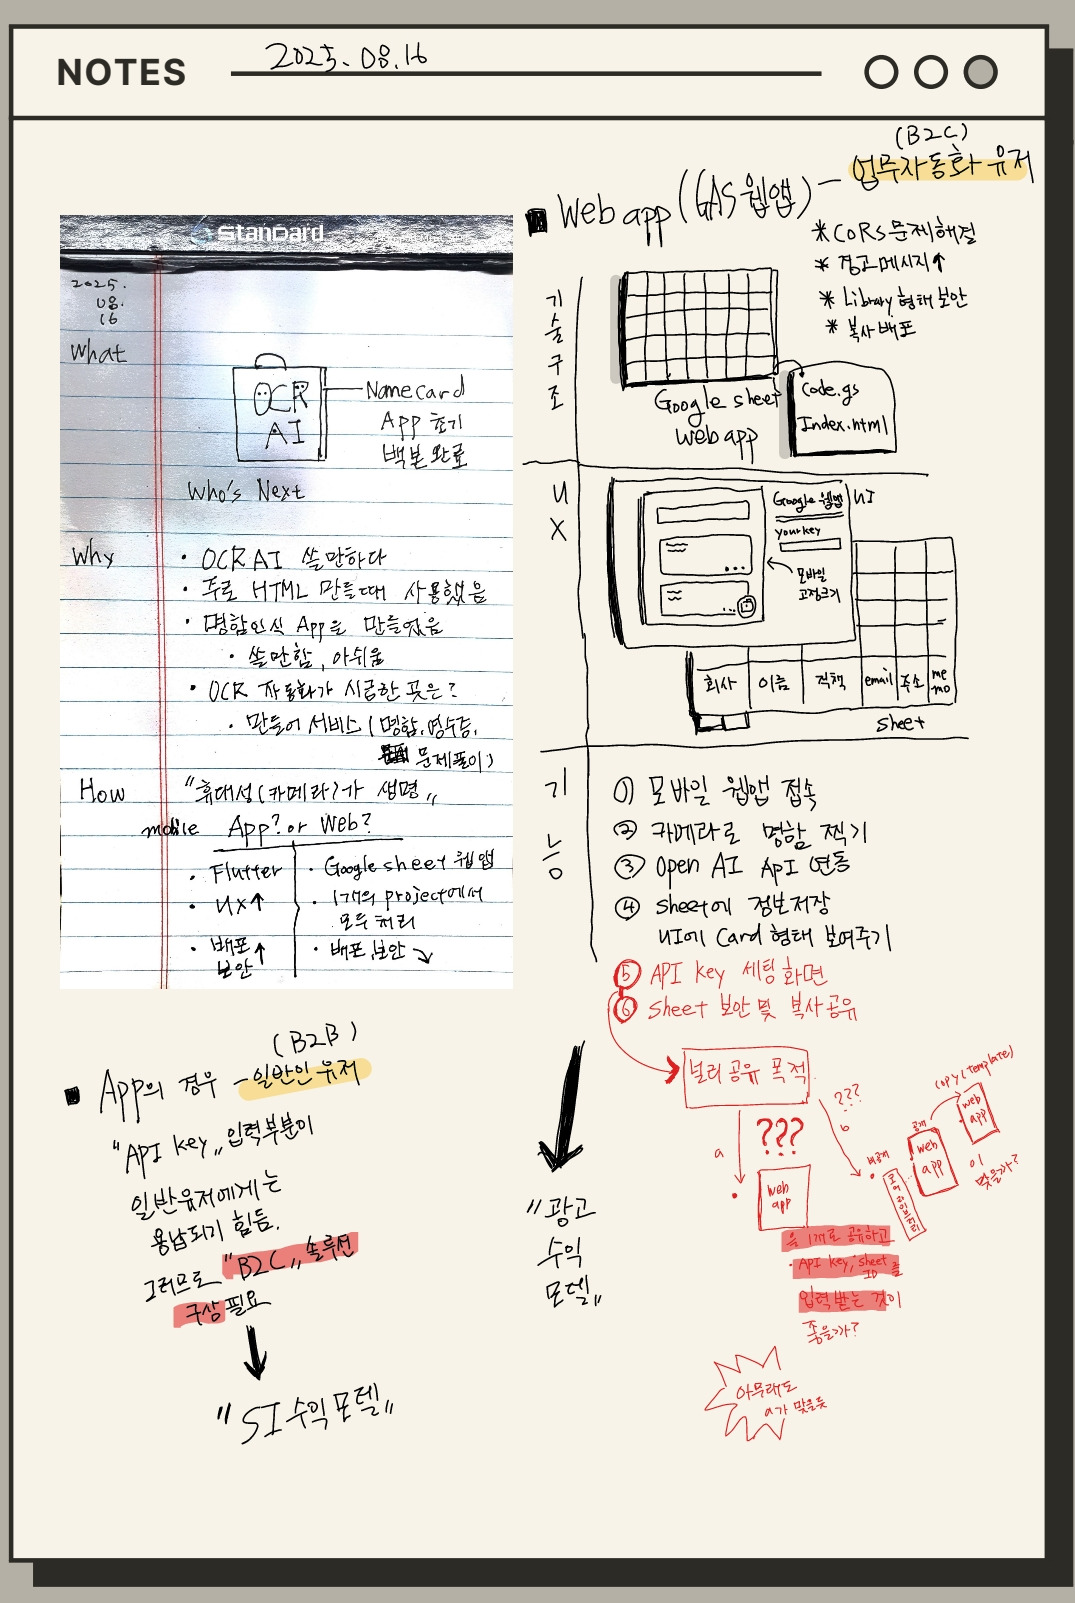 NOTES
2025. 08. 16
Standard
2025.
08.
16
What
OCR
AI
Name card
App 초기
백본 완료
Who's Next
Why
• OCR AI 쓸만하다
• 주로 HTML 만들때 사용했음
• 명함인식 App을 만들었음
• 쓸만함, 아쉬움
• OCR 자동화가 시급한 곳은?
• 만들어 서비스 (명함, 영수증,
문제풀이)
How
"휴대성(카메라)가 생명"
mobile App? or Web?
• Flutter
• UX↑
• 배포↑
보안
• Google sheet 웹앱
• 1개의 project에서
모두 처리
• 배포, 보안↘
(B2B)
■ App의 경우 - 일반인 유저
"API key" 입력부분이
일반유저에게는
용납되기 힘듬.
그러므로 "B2C" 솔루션
구상 필요
"SI 수익모델"
(B2C)
■ Web app (GAS 웹앱) - 업무자동화 유저
* CORS 문제해결
* 경고메시지↑
* Library 형태 보안
* 복사 배포
기술구조
Google sheet
web app
Code.gs
Index.html
UX
Google 웹앱
your key
UI
모바일
고정크기
회사 이름 직책 email 주소 memo
sheet
기능
① 모바일 웹앱 접속
② 카메라로 명함 찍기
③ Open AI API 연동
④ sheet에 정보저장
UI에 Card 형태 보여주기
⑤ API key 세팅화면
⑥ Sheet 보안 및 복사공유
널리 공유 목적
a
???
web
app
을 1개로 공유하고
• API key, sheet
ID를
입력 받는 것이
좋을까?
???
b
비공개
코어 라이브러리
공개
web
app
copy (template)
web
app
이
맞을까?
아무래도
a가 맞을듯
"광고
수익
모델"